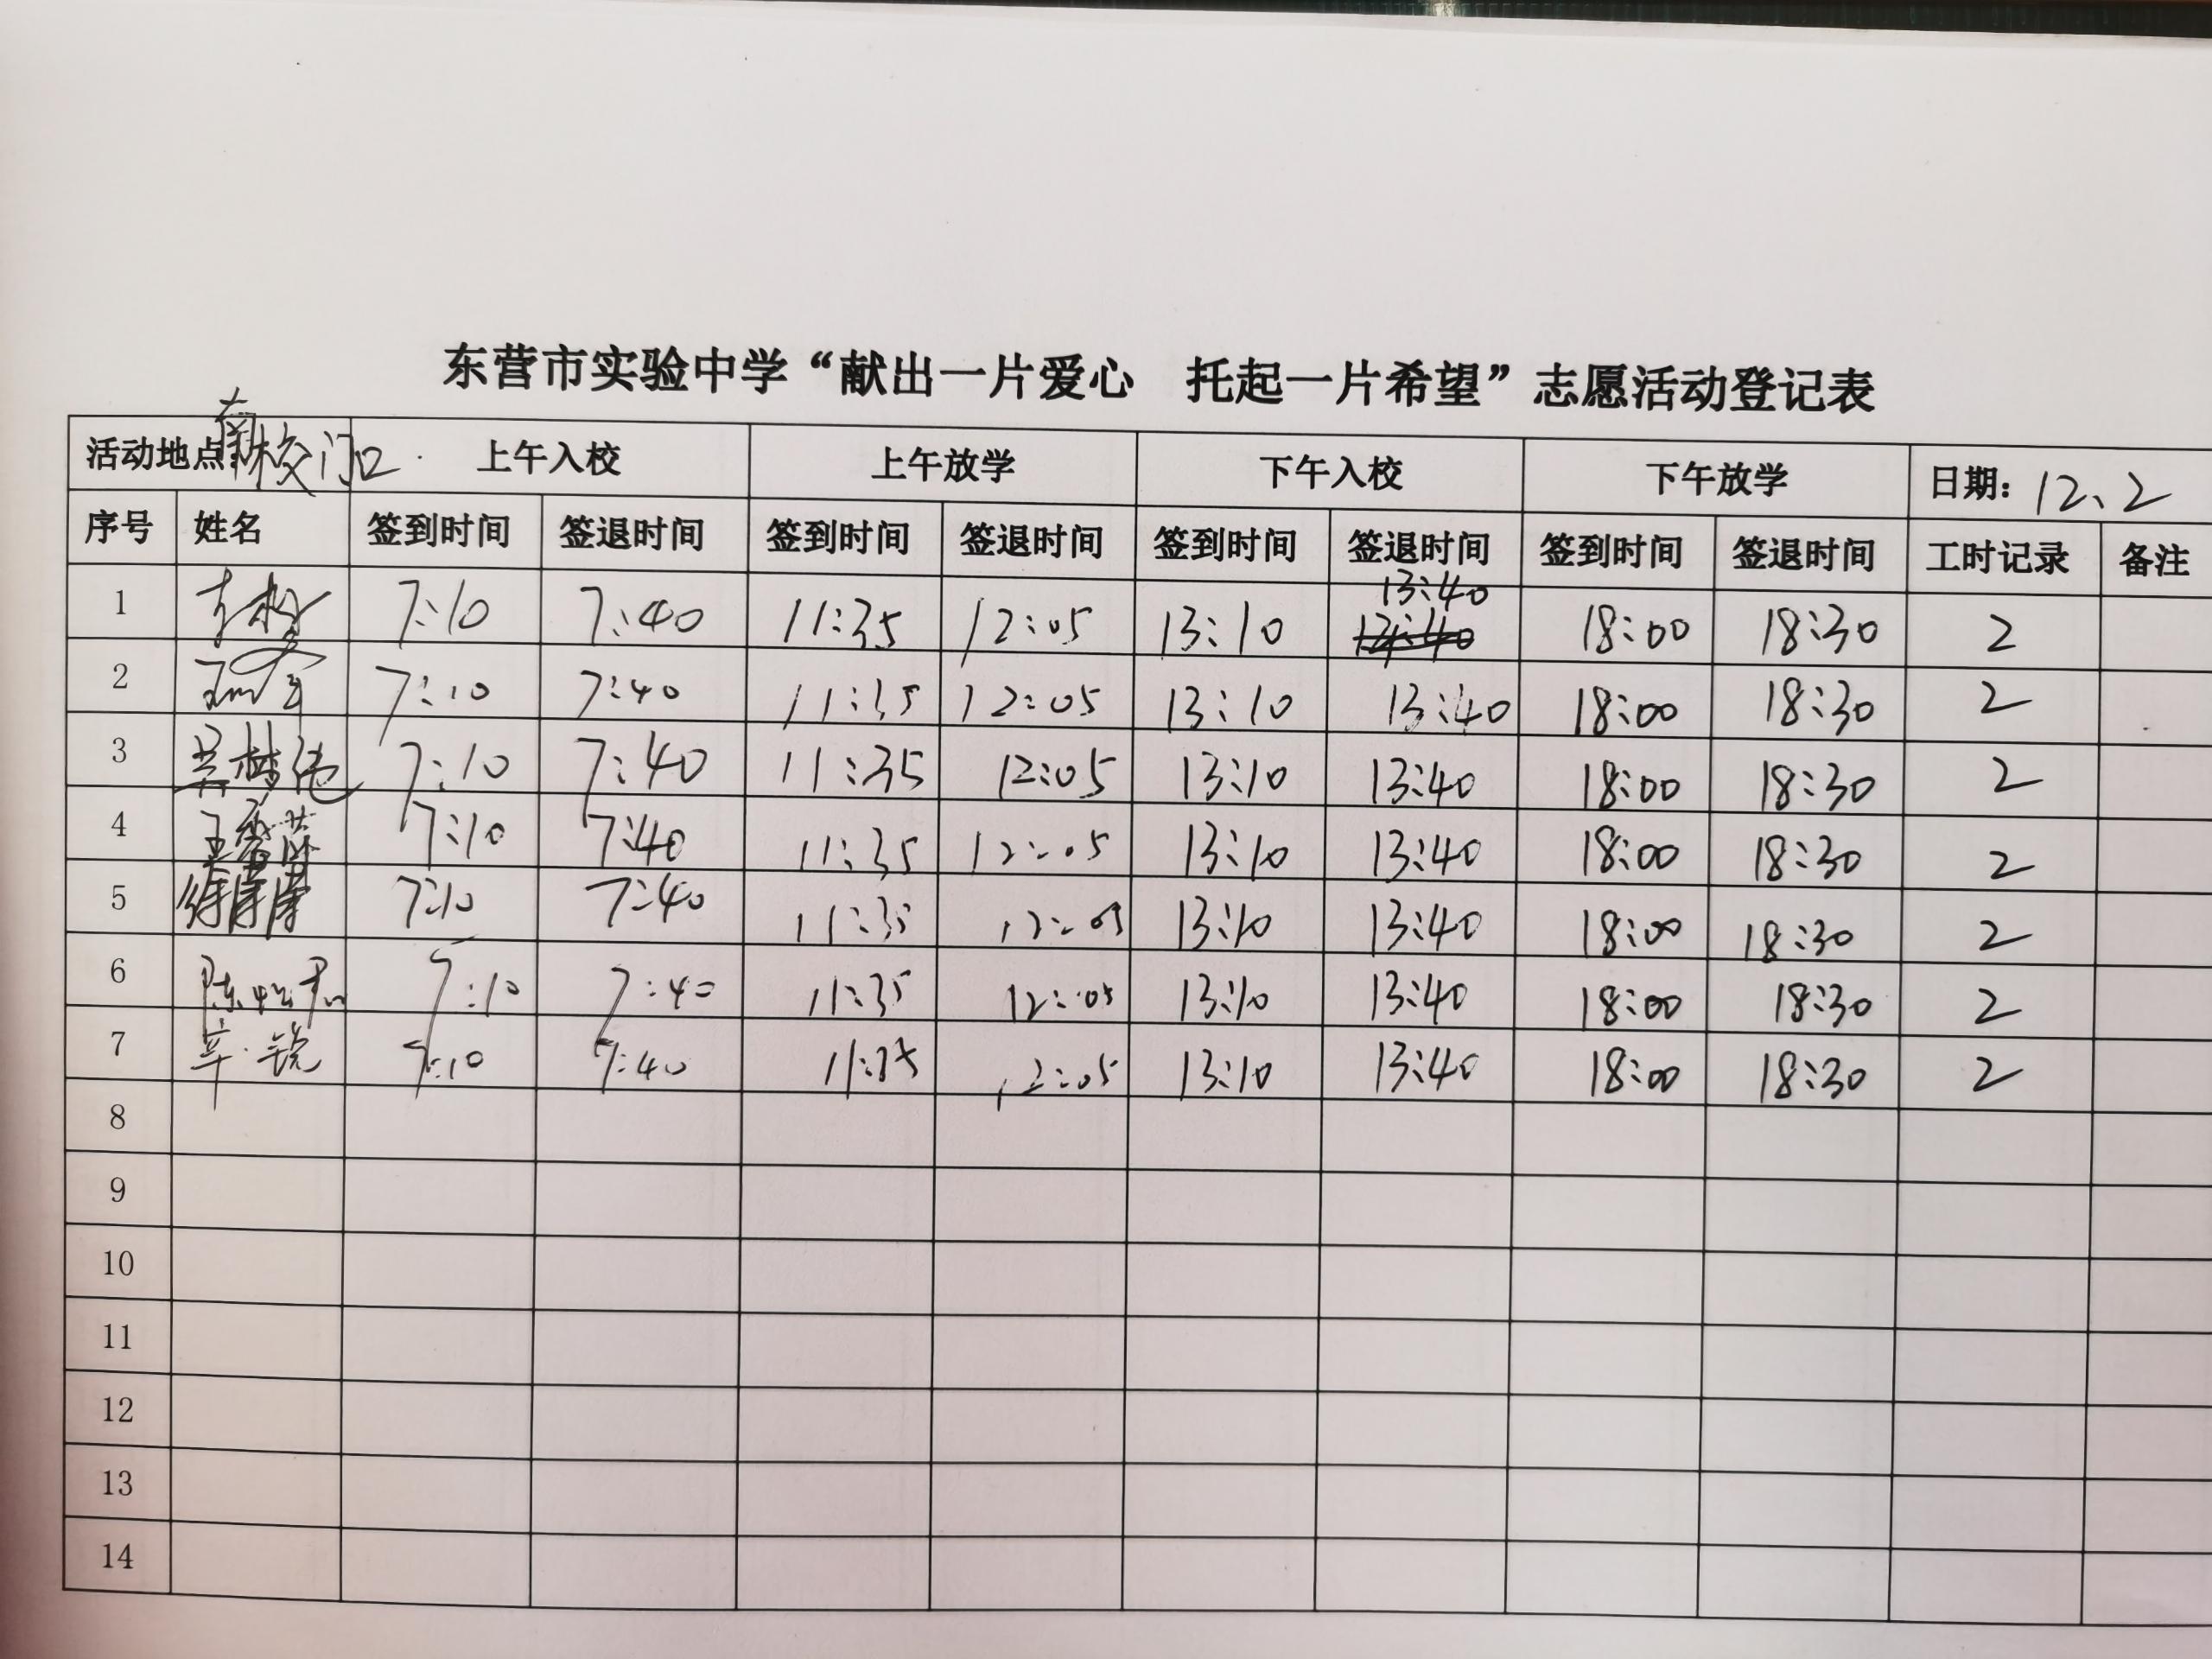 东营市实验中学“献出一片爱心 托起一片希望”志愿活动登记表
活动地点: 校门口 上午入校 上午放学 下午入校 下午放学 日期: 12、2
序号 姓名 签到时间 签退时间 签到时间 签退时间 签到时间 签退时间 签到时间 签退时间 工时记录 备注
1 7:10 7:40 11:35 12:05 13:10 13:40 18:00 18:30 2
2 7:10 7:40 11:35 12:05 13:10 13:40 18:00 18:30 2
3 7:10 7:40 11:35 12:05 13:10 13:40 18:00 18:30 2
4 7:10 7:40 11:35 12:05 13:10 13:40 18:00 18:30 2
5 7:10 7:40 11:35 12:05 13:10 13:40 18:00 18:30 2
6 7:10 7:40 11:35 12:05 13:10 13:40 18:00 18:30 2
7 辛锐 7:10 7:40 11:35 12:05 13:10 13:40 18:00 18:30 2
8
9
10
11
12
13
14